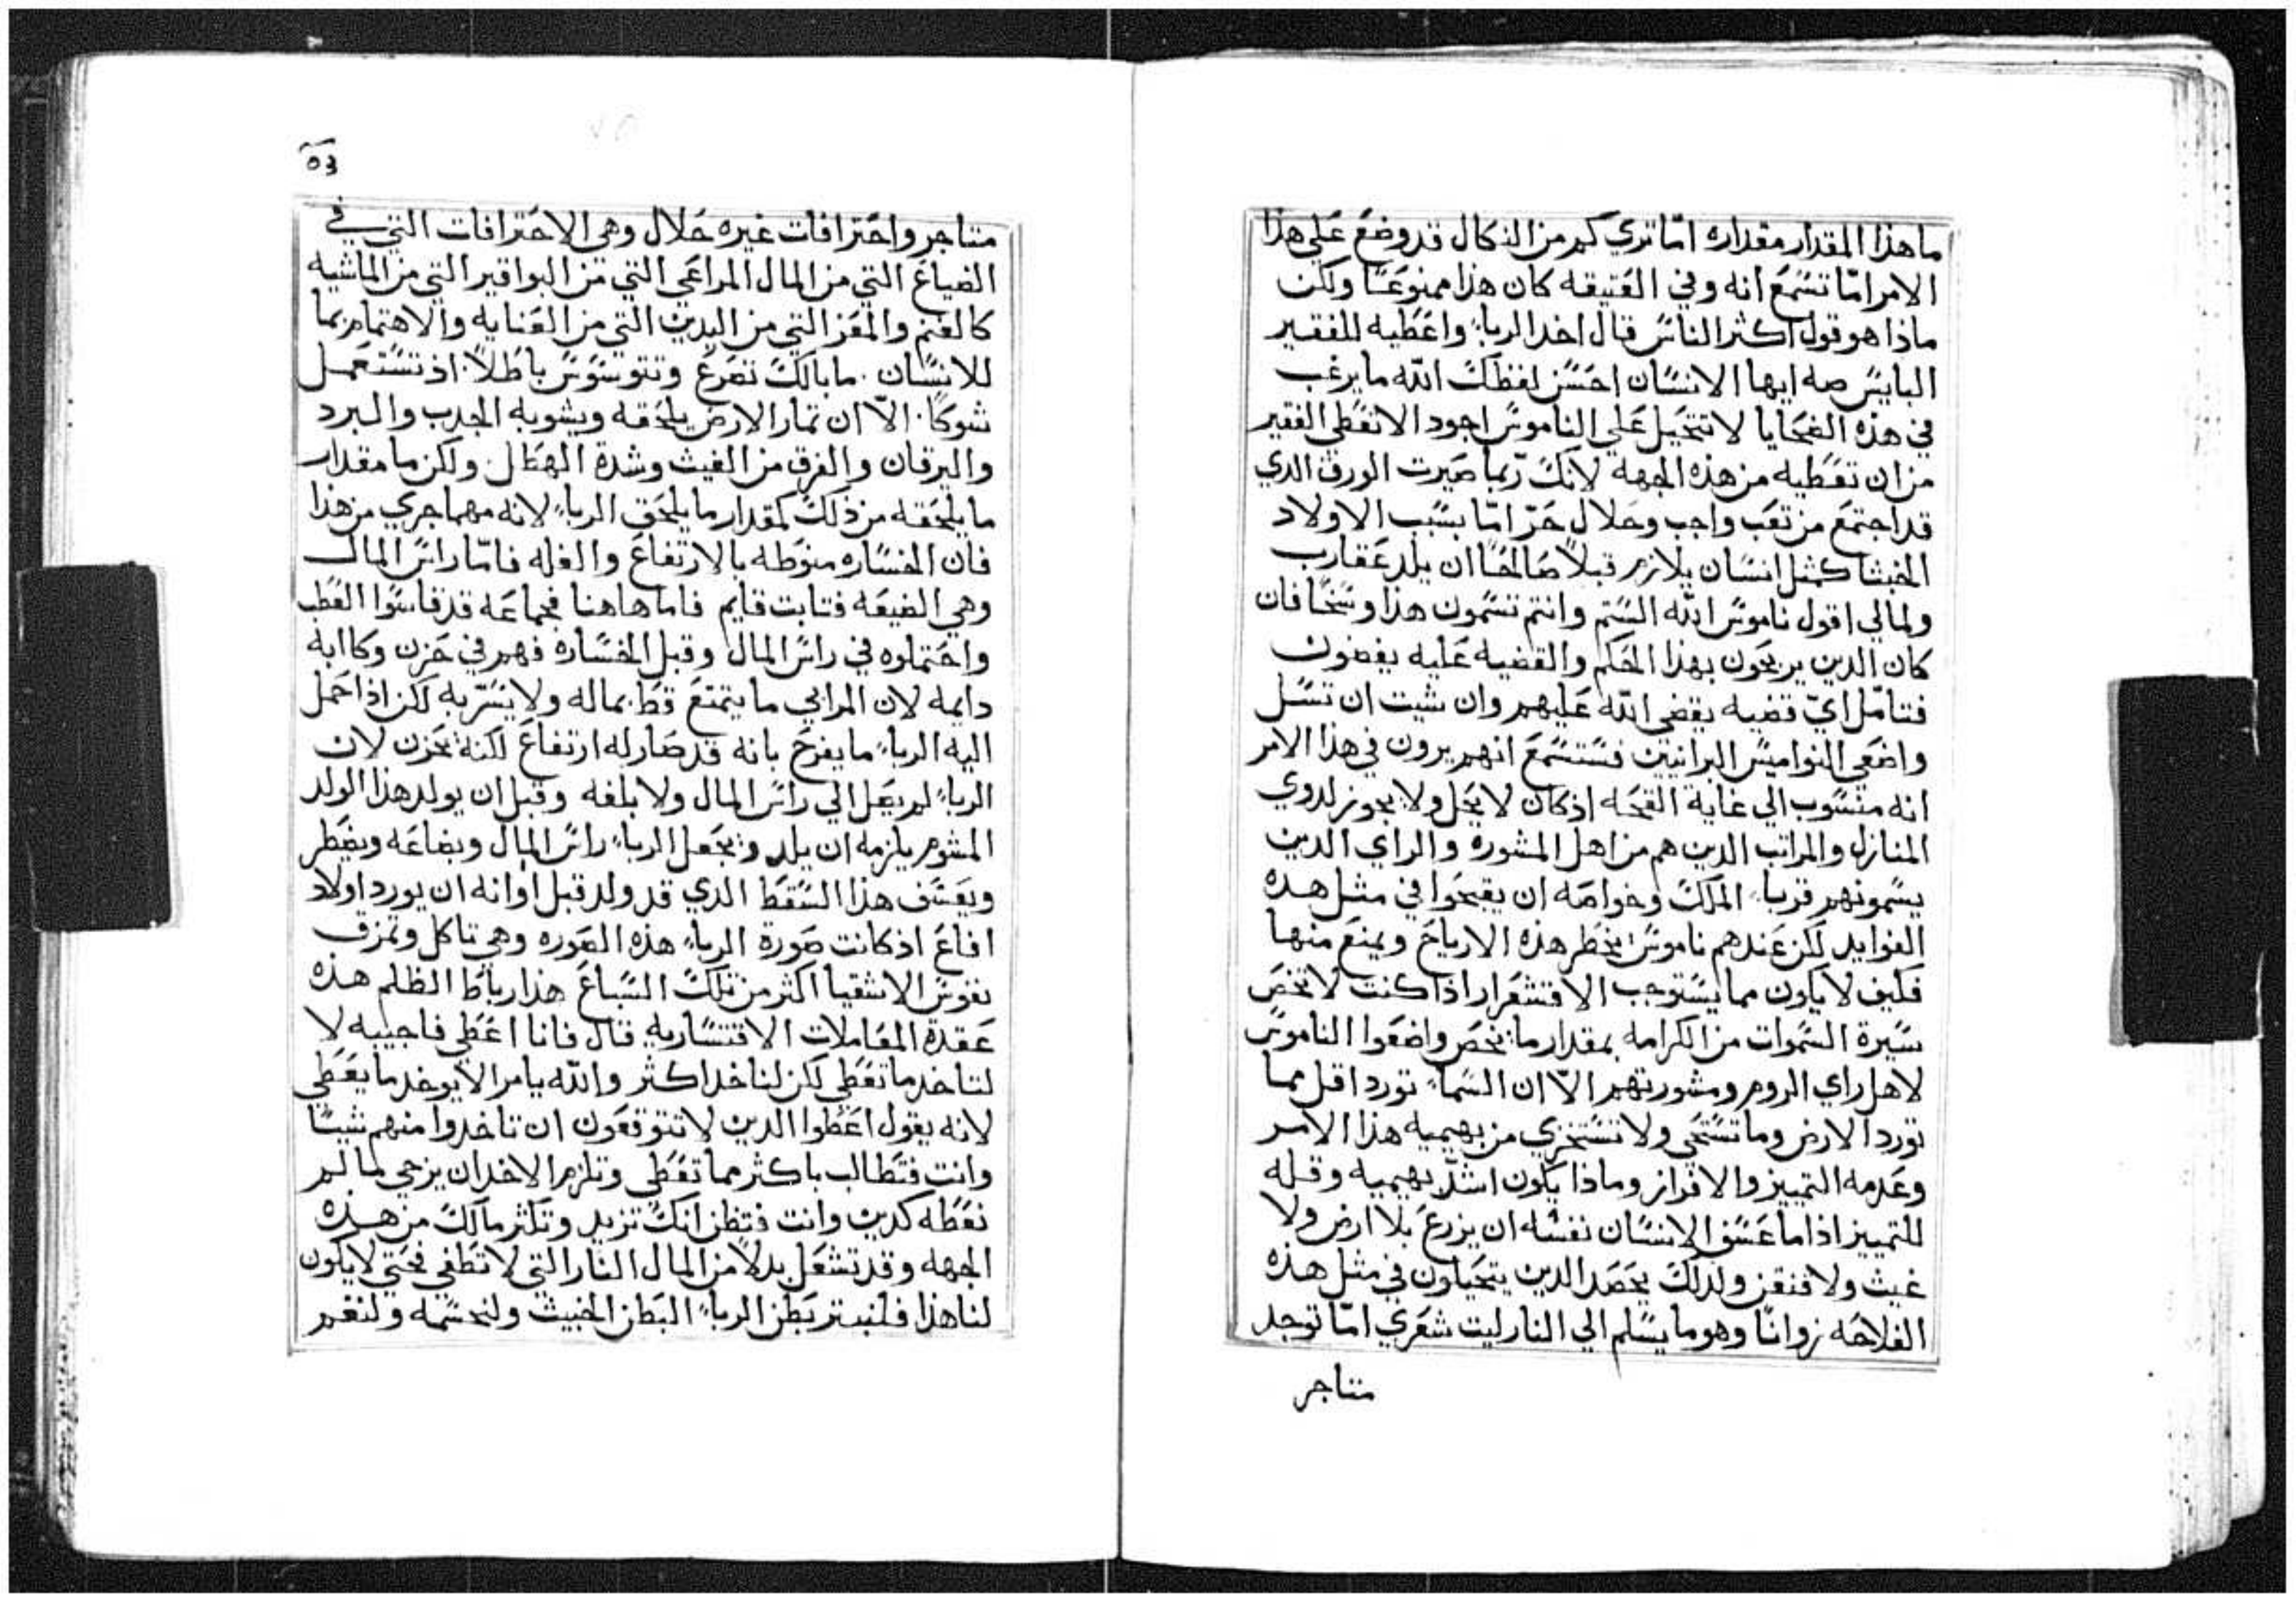 ما هذا المقدار مقداره امّا تري كم من النكال قد وضع علي هذا
الامر امّا تسمع انه وفي العتيقه كان هذا ممنوعًا ولكن
ماذا هو قول اكثر الناس قال اخد الرباء واعطيه للفقير
البايس صه ايها الانسان احسن لفظك الله ما يرغب
في هذه الضحايا لا تتحيل علي الناموس اجود الا تعطي الفقير
من ان تعطيه من هذه الجهه لانك ربّما صيرت الورق الدي
قد اجتمع من تعب واجب وحلال حرّ امّا بسبب الاولاد
الخبثا كمثل انسان يلازم قبلاً صالحًا ان يلد عقارب
ولمالي اقول ناموس الله الستم وانتم تسمون هذا وسخًا فان
كان الدين يربحون بهذا الحكم والقضيه عليه يقضون
فتامّل ايّ قضيه يقضي الله عليهم وان شيت ان تسل
واضعي النواميس البرانيين فستسمع انهم يرون في هذا الامر
انه منسوب الي غاية القحه اد كان لا يحل ولا يجوز لدوي
المنازل والمراتب الدين هم من اهل المشوره والراي الدين
يسمونهم قرباء الملك وخواصه ان يقبحوا في مثل هده
الفوايد لكن عندهم ناموس يحظر هذه الارياح ويمنع منها
فكيف لا يكون مما يستوجب الاقتشعرار اذا كنت لا تخص
سيرة السموات من الكرامه بمقدار ما يخص واضعوا الناموس
لاهل راي الروم ومشورتهم الاّ ان السماء تورد اقل مما
تورد الارض وما تستحي ولا تستخزي من بهيميه هذا الامر
وعدمه التمييز والافراز وماذا يكون اشدّ بهيميه وقله
للتمييز اذا ما عسف الانسان نفسه ان يزرع بلا ارض ولا
غيث ولا فنقن ولدلك يحصد الدين يتحيلون في مثل هذه
الفلاحه زوانًا وهو ما يسلم الي النار ليت شعري امّا توجد
متاجر
٥٣
متاجر واحترافات غيره حلال وهي الاحترافات التي في
الضياع التي من المال المراعي التي من البواقير التي من الماشيه
كالغنم والمعز التي من اليدين التي من العنايه والاهتمام بما
للانسان ما بالك تصرع وتتوسوس باطلاً اذ تستعمل
شوكًا الاّ ان ثمار الارض يلحقه ويشوبه الجدب والبرد
واليرقان والغرق من الغيث وشدة الهطل ولكن ما مقدار
ما يلحقه من ذلك كمقدار ما يلحق الرباء لانه مهما جري من هذا
فان الخساره منوطه بالارتفاع والغله فامّا راس المال
وهي الضيعه فثابت قايم فاما هاهنا فجماعه قد قاسوا العطب
واحتملوه في راس المال وقبل الخساره فهم في حزن وكاابه
دايمه لان المرابي ما يتمتع قط بماله ولا يسرّ به لكن اذا حمل
اليه الرباء ما يفرح بانه قد صار له ارتفاع لكنه يحزن لان
الرباء لم يصل الي راس المال ولا بلغه وقبل ان يولد هذا الولد
المشوم يلزمه ان يلد ويجعل الرباء راس المال وبضاعه ويضطر
ويعسف هذا السقط الذي قد ولد قبل اوانه ان يورد اولاد
افاع اذ كانت صورة الرباء هذه الصوره وهي تاكل وتمزق
نفوس الاشقيا اكثر من تلك السباع هذا رباط الظلم هذه
عقدة المعاملات الاقتساريه قال فانا اعطي فاجيبه لا
لتاخد ما تعطي لكن لتاخد اكثر والله يامر الا يوخد ما يعطي
لانه يقول اعطوا الدين لا تتوقعون ان تاخدوا منهم شييًا
وانت فتطالب باكثر مما تعطي وتلزم الاخدان يزجي لما لم
تعطه كدين وانت فتظن انك تزيد وتكثر مالك من هذه
الجهه وقد تشعل بدلاً من المال النار التي لا تطفي فحتي لا يكون
لنا هذا فلنبتر بطن الرباء البطن الخبيث ولنحسمه ولنغم